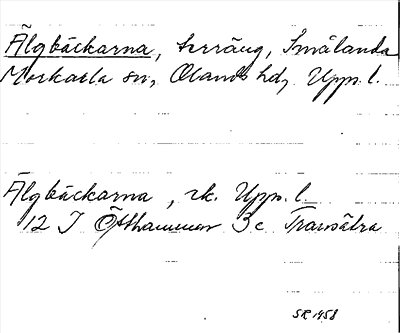 Älgbäckarna, terräng, Smålanda
Morkarla sn, Olands hd, Upps. l.
Älgbäckarna, rk. Upps. l.
12 I Östhammar 3 c Tranvätra
SR 1958